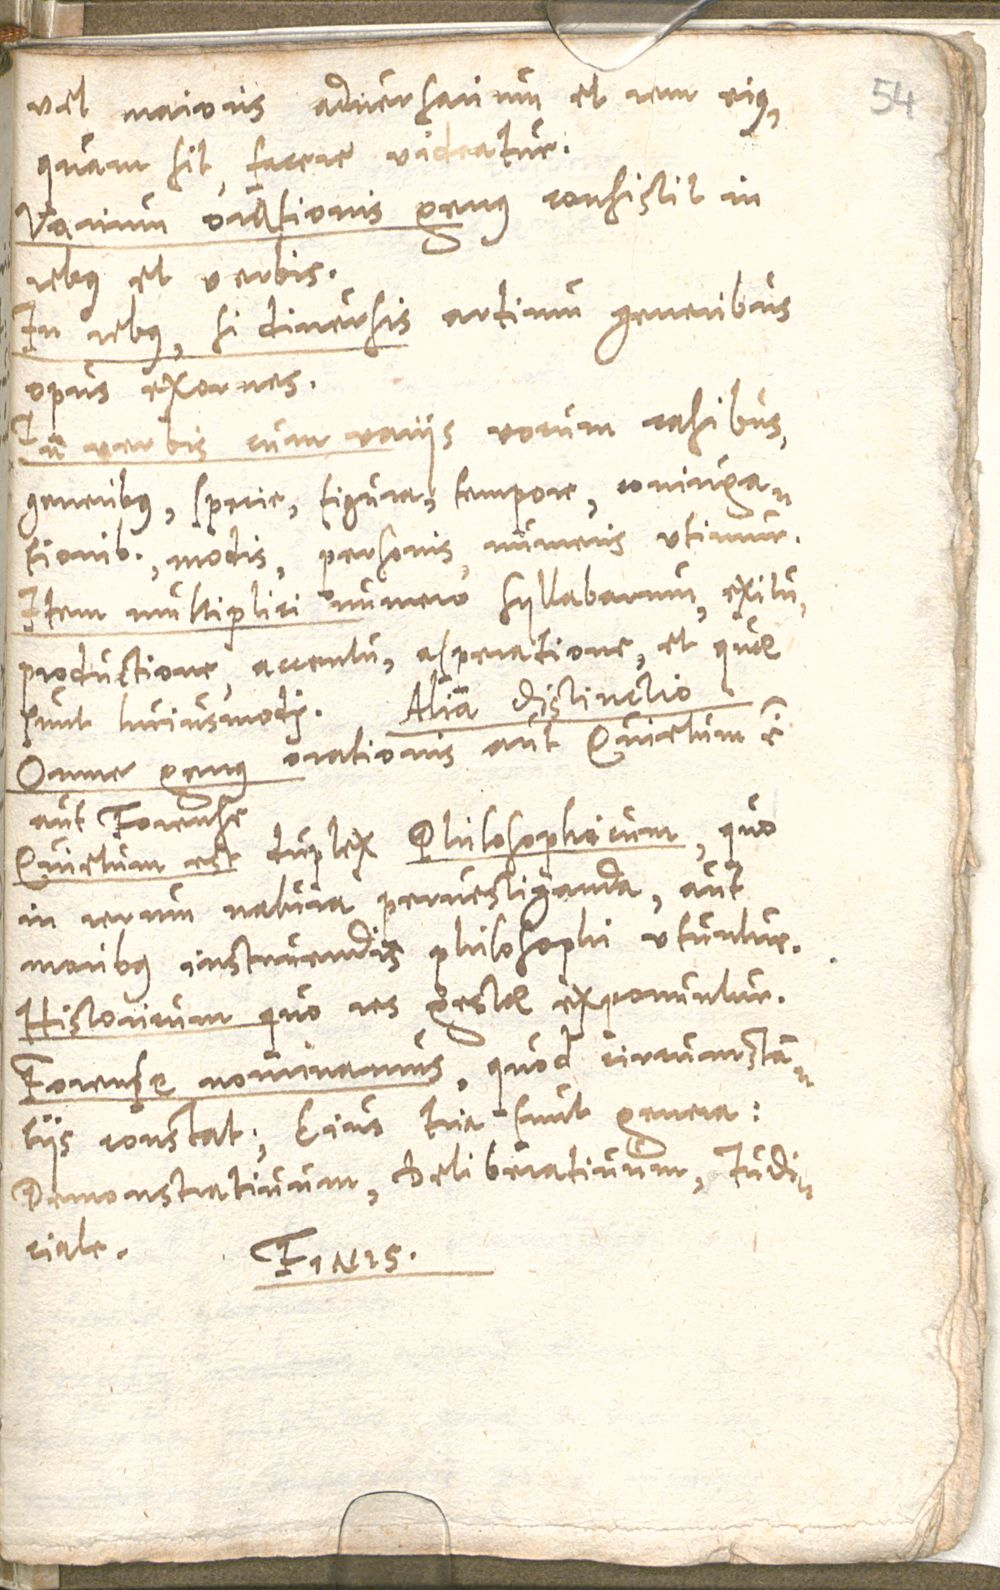 54
vel maioris aduersarium et rem eiꝰ,
quam sit, facere videatur.
Varium orationis genꝰ consistit in
rebꝰ et verbis.
In rebꝰ, si diuersis artium generibus
opus exornes.
In verbis cum varijs vocum casibus,
generibꝰ, specie, figura, tempore, coniuga-
tionib., modis, personis, numeris vtimur.
Item multiplici numero syllabarum, exitu,
productione, accentu, asperatione, et quæ
sunt huiusmodj. Alia distinctio
Omne genꝰ orationis aut Quietum ẽ
aut Forense
Quietum est duplex Philosophicum, quo
in rerum natura peruestiganda, aut
moribꝰ instruendis philosophi vtuntur.
Historicum quo res gestæ exponuntur.
Forense nominamus, quod circumstan-
tijs constat; Eius tria sunt genera:
Demonstratiuum, deliberatiuum, Iudi-
ciale.
FINIS.